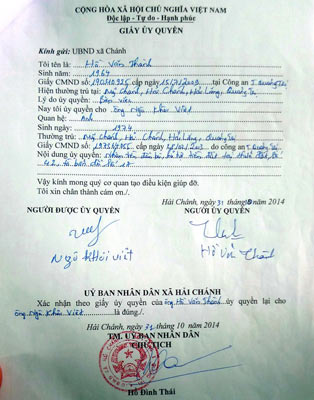 CỘNG HÒA XÃ HỘI CHỦ NGHĨA VIỆT NAM
Độc lập - Tự do - Hạnh phúc
GIẤY ỦY QUYỀN
Kính gửi: UBND xã Chánh
Tôi tên là: Hồ Văn Thánh
Sinh năm: 1964
Giấy CMND số: cấp ngày tại Công an T. Quảng Trị
Hiện thường trú tại: Mỹ Chánh, Hải Chánh, Hải Lăng, Quảng Trị
Lý do ủy quyền:
Nay tôi ủy quyền cho: Ông Ngô Khôi Việt
Quan hệ: Anh
Sinh năm: 1974
Thường trú: Mỹ Chánh, Hải Chánh, Hải Lăng, Quảng Trị
Giấy CMND số: cấp ngày do công an T. Quảng Trị
Nội dung ủy quyền: Nhận tiền
Vậy kính mong quý cơ quan tạo điều kiện giúp đỡ.
Tôi xin chân thành cảm ơn./.
Hải Chánh, ngày 31 tháng 10 năm 2014
NGƯỜI ĐƯỢC ỦY QUYỀN NGƯỜI ỦY QUYỀN
Ngô Khôi Việt Hồ Văn Thánh
UỶ BAN NHÂN DÂN XÃ HẢI CHÁNH
Xác nhận theo giấy ủy quyền của ông Hồ Văn Thánh ủy quyền lại cho
ông Ngô Khôi Việt là đúng./.
Hải Chánh, ngày 31 tháng 10 năm 2014
TM. UỶ BAN NHÂN DÂN
CHỦ TỊCH
Hồ Đình Thái